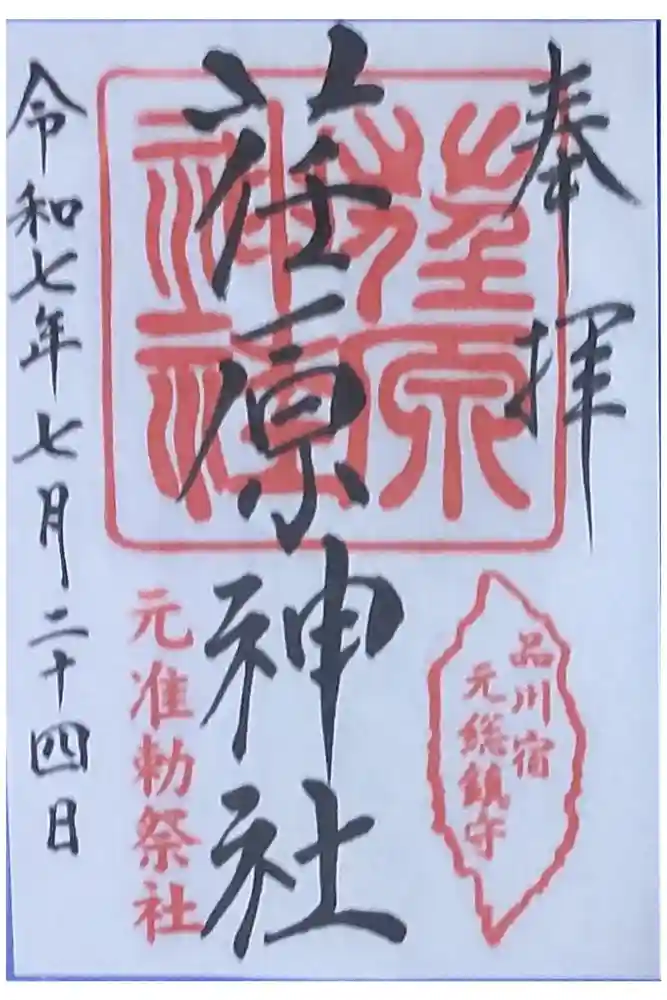 奉拝
品川宿
元総鎮守
荏原
神社
荏原神社
元准勅祭社
令和七年七月二十四日